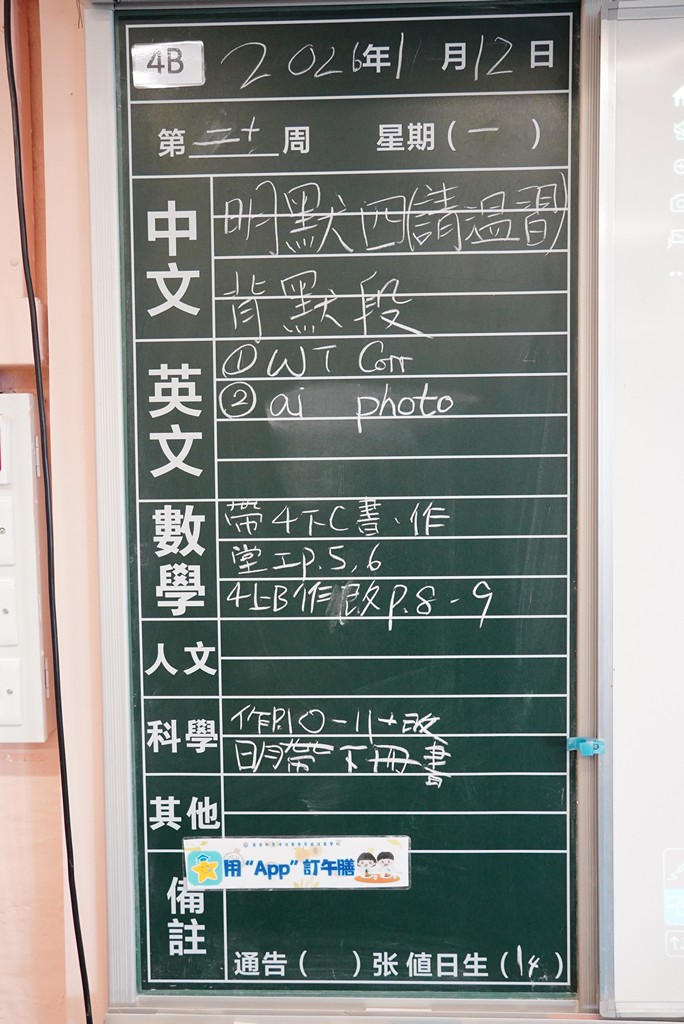 4B 2026年1月12日
第二十周 星期(一)
中文 明默四(請溫習)
背默段
英文 ①WT Corr
② ai photo
數學 帶4下C書、作
堂工p.5,6
4上B作改p.8-9
人文
科學 作P.10-11+改
明帶下冊書
其他
用“App”訂午膳
備註
通告( )张 值日生(14)